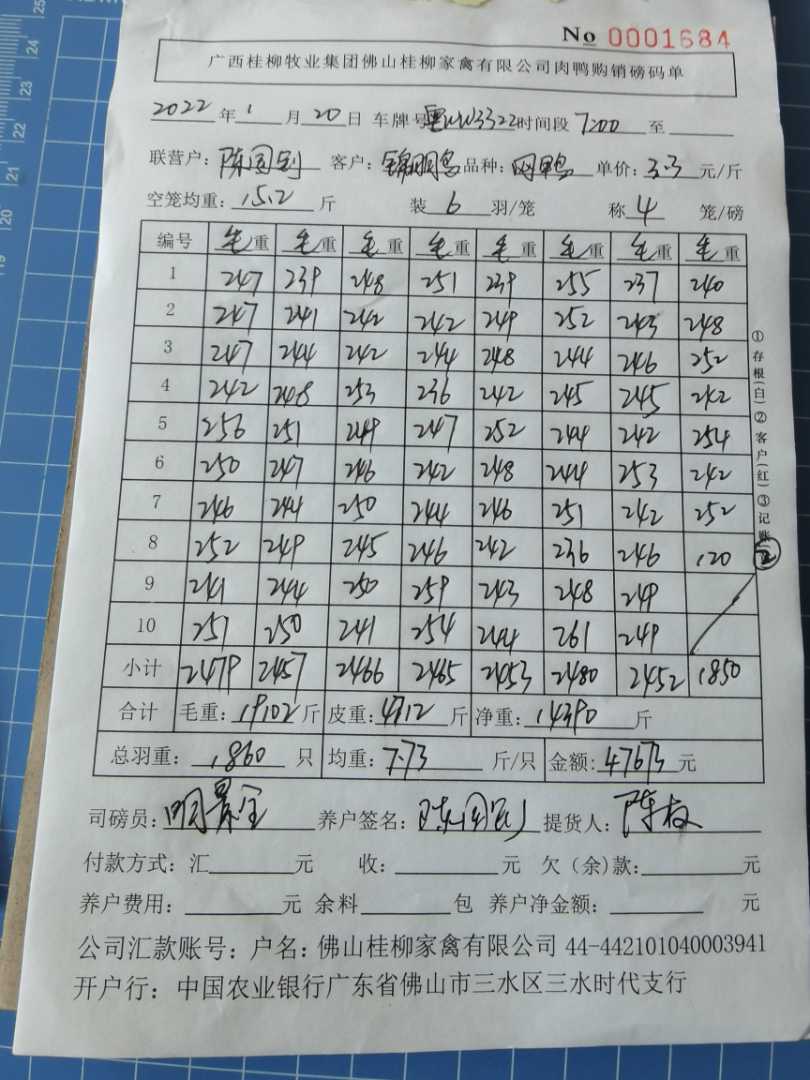 No 0001684
广西桂柳牧业集团佛山桂柳家禽有限公司肉鸭购销磅码单
2022年1月20日 车牌号 粤WW3322 时间段 7:00 至
联营户: 陈国钊 客户: 锦明 品种: 鸭 单价: 3.3 元/斤
空笼均重: 15.2 斤 装 6 羽/笼 称 4 笼/磅
编号 毛重 毛重 毛重 毛重 毛重 毛重 毛重 毛重
1 247 239 248 251 239 255 237 240
2 247 241 242 242 249 252 243 248
3 247 244 242 244 248 244 246 252
4 242 248 253 236 242 245 245 242
5 256 251 249 247 252 244 242 254
6 250 247 246 242 248 244 253 242
7 246 244 250 244 246 251 242 252
8 252 249 245 246 242 236 246 120
9 241 244 250 259 243 248 249
10 251 250 241 254 244 261 249
小计 2479 2457 2466 2465 2453 2480 2452 1850
合计 毛重: 19102 斤 皮重: 4712 斤 净重: 14390 斤
总羽重: 1860 只 均重: 7.73 斤/只 金额: 47673 元
①存根(白)②客户(红)③记账
司磅员: 养户签名: 陈国钊 提货人: 陈
付款方式: 汇 元 收: 元 欠(余)款: 元
养户费用: 元 余料 包 养户净金额: 元
公司汇款账号: 户名: 佛山桂柳家禽有限公司 44-442101040003941
开户行: 中国农业银行广东省佛山市三水区三水时代支行